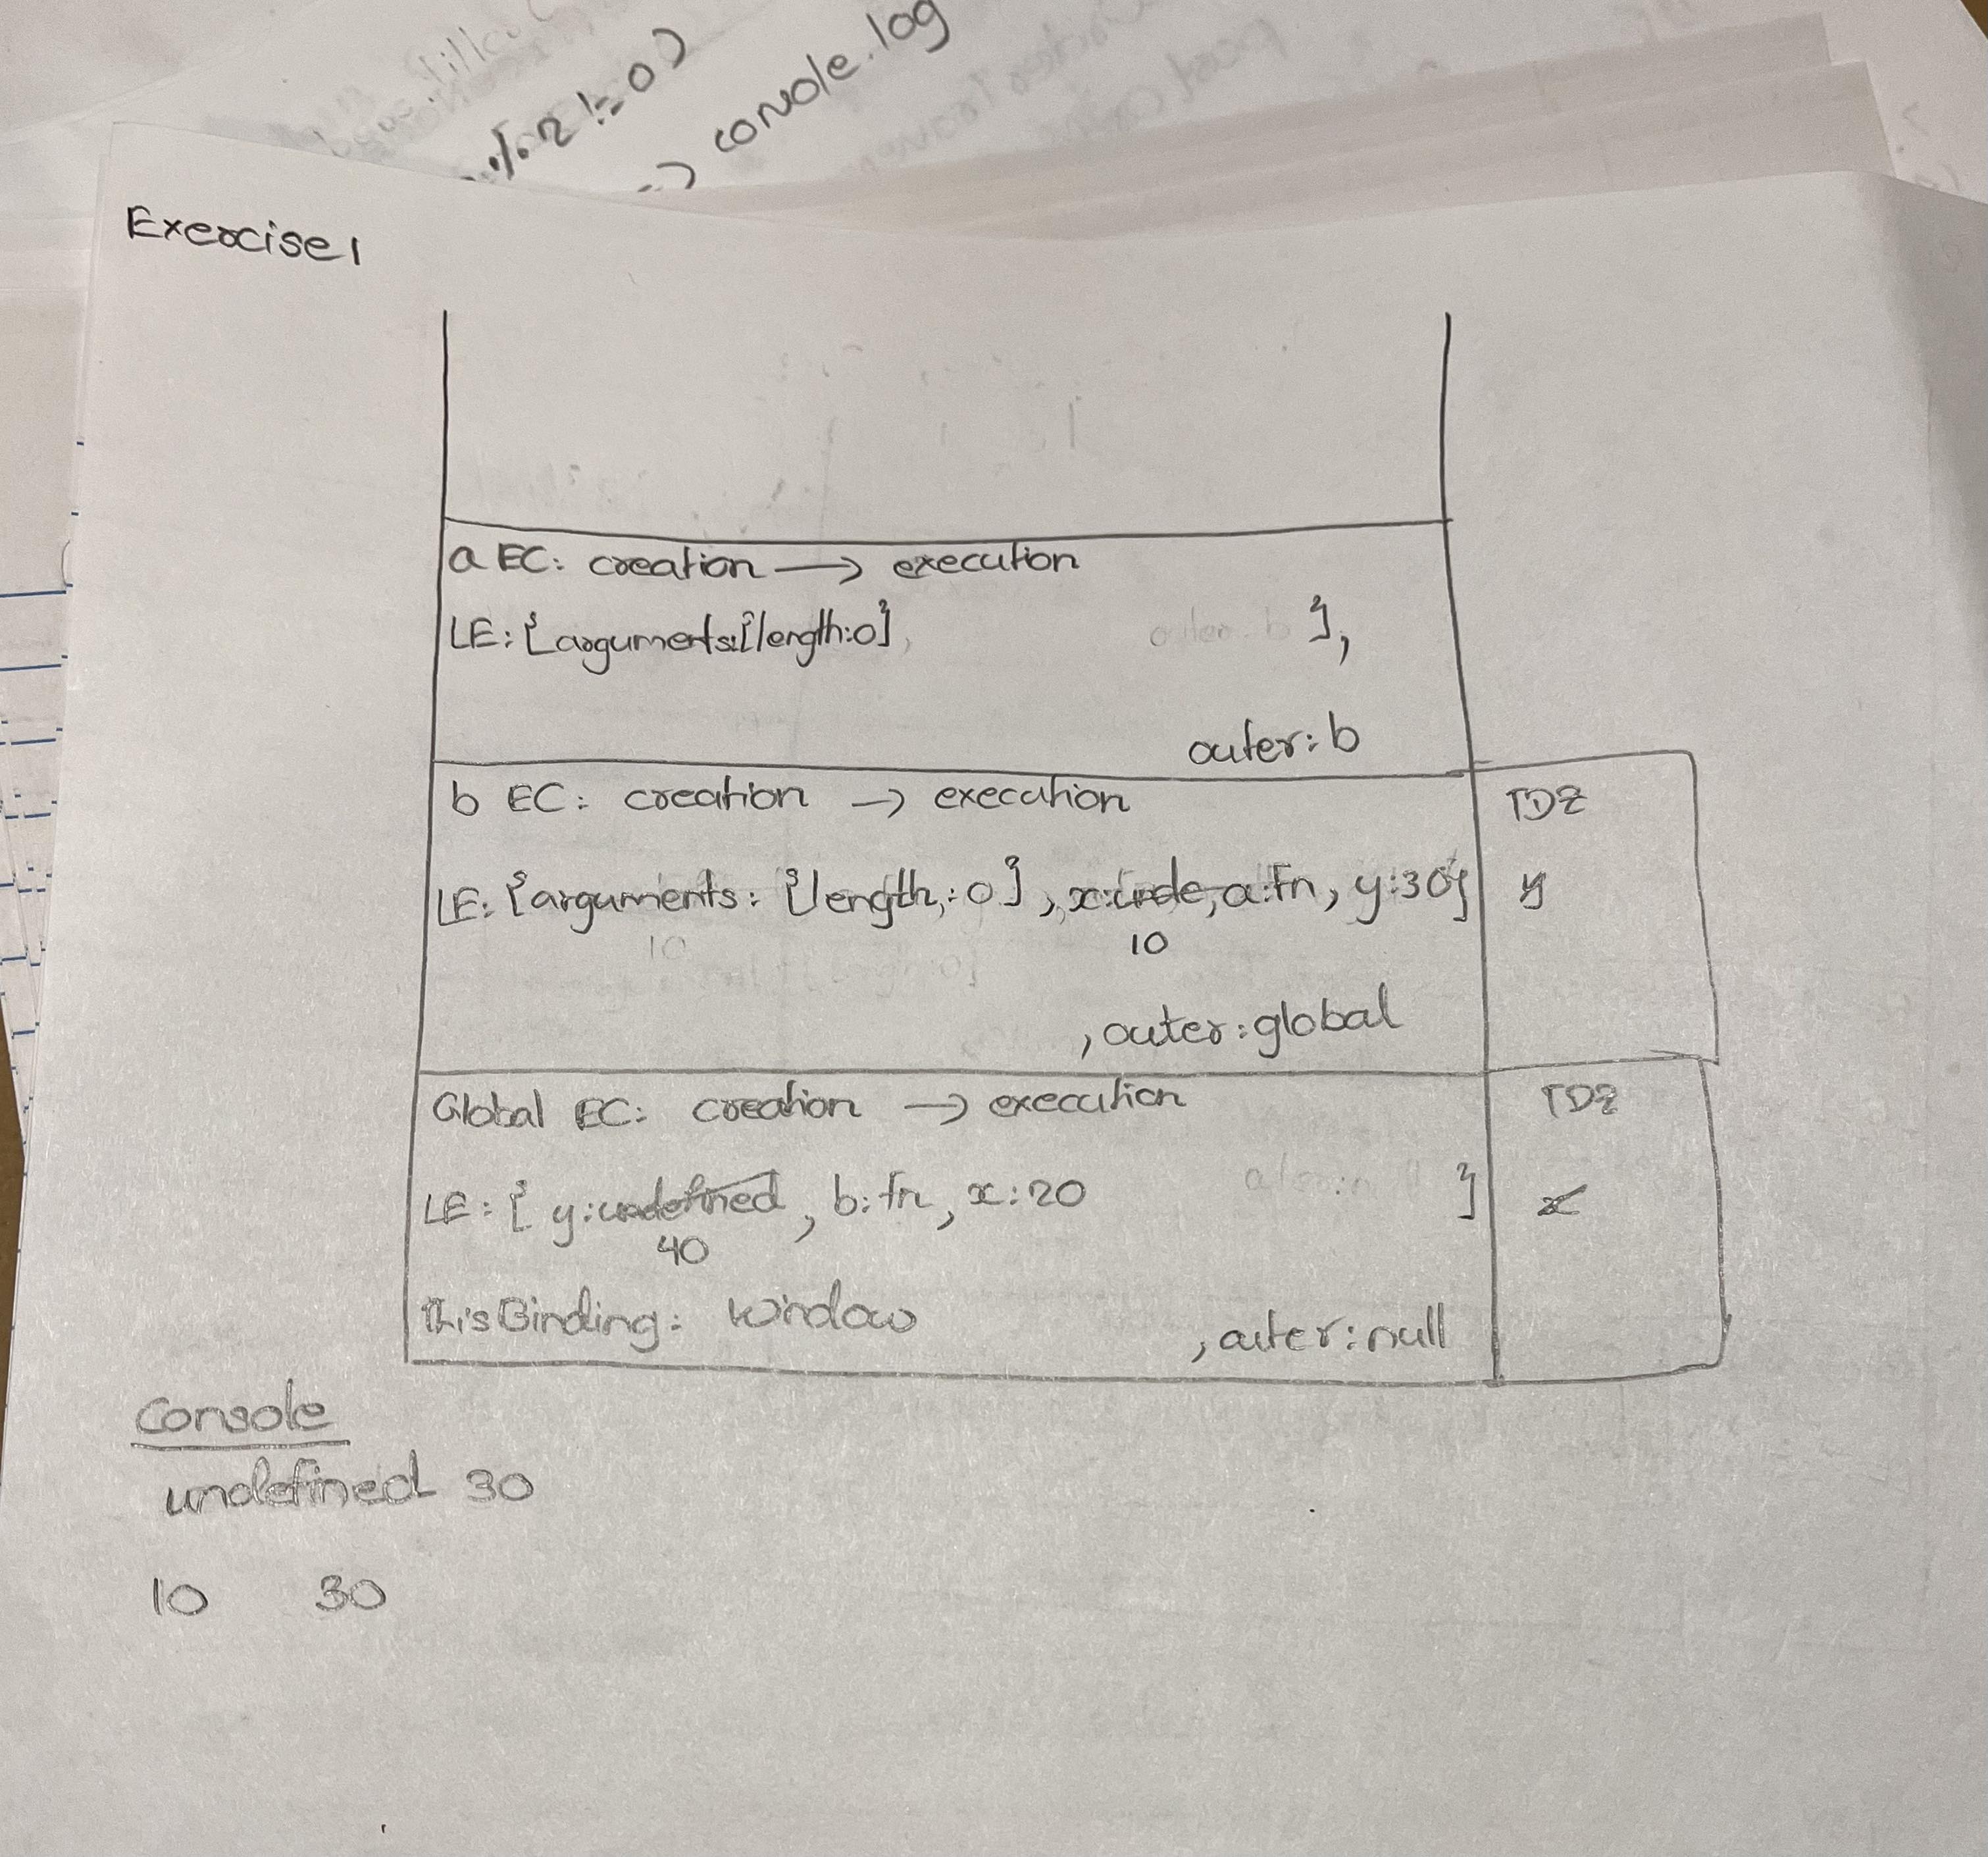 .%. 2 != 0)
=> console.log
Exercise 1
a EC: creation → execution
LE: {arguments:{length:0}, outer: b },
outer: b
b EC: creation → execution TDZ
LE: {arguments: {length: 0}, x:unde, a:Fn, y:30} y
10 10
, outer: global
Global EC: creation → execution TDZ
LE: { y:undefined, b:fn, x:20 } x
40
thisBinding: window , outer: null
Console
undefined 30
10 30